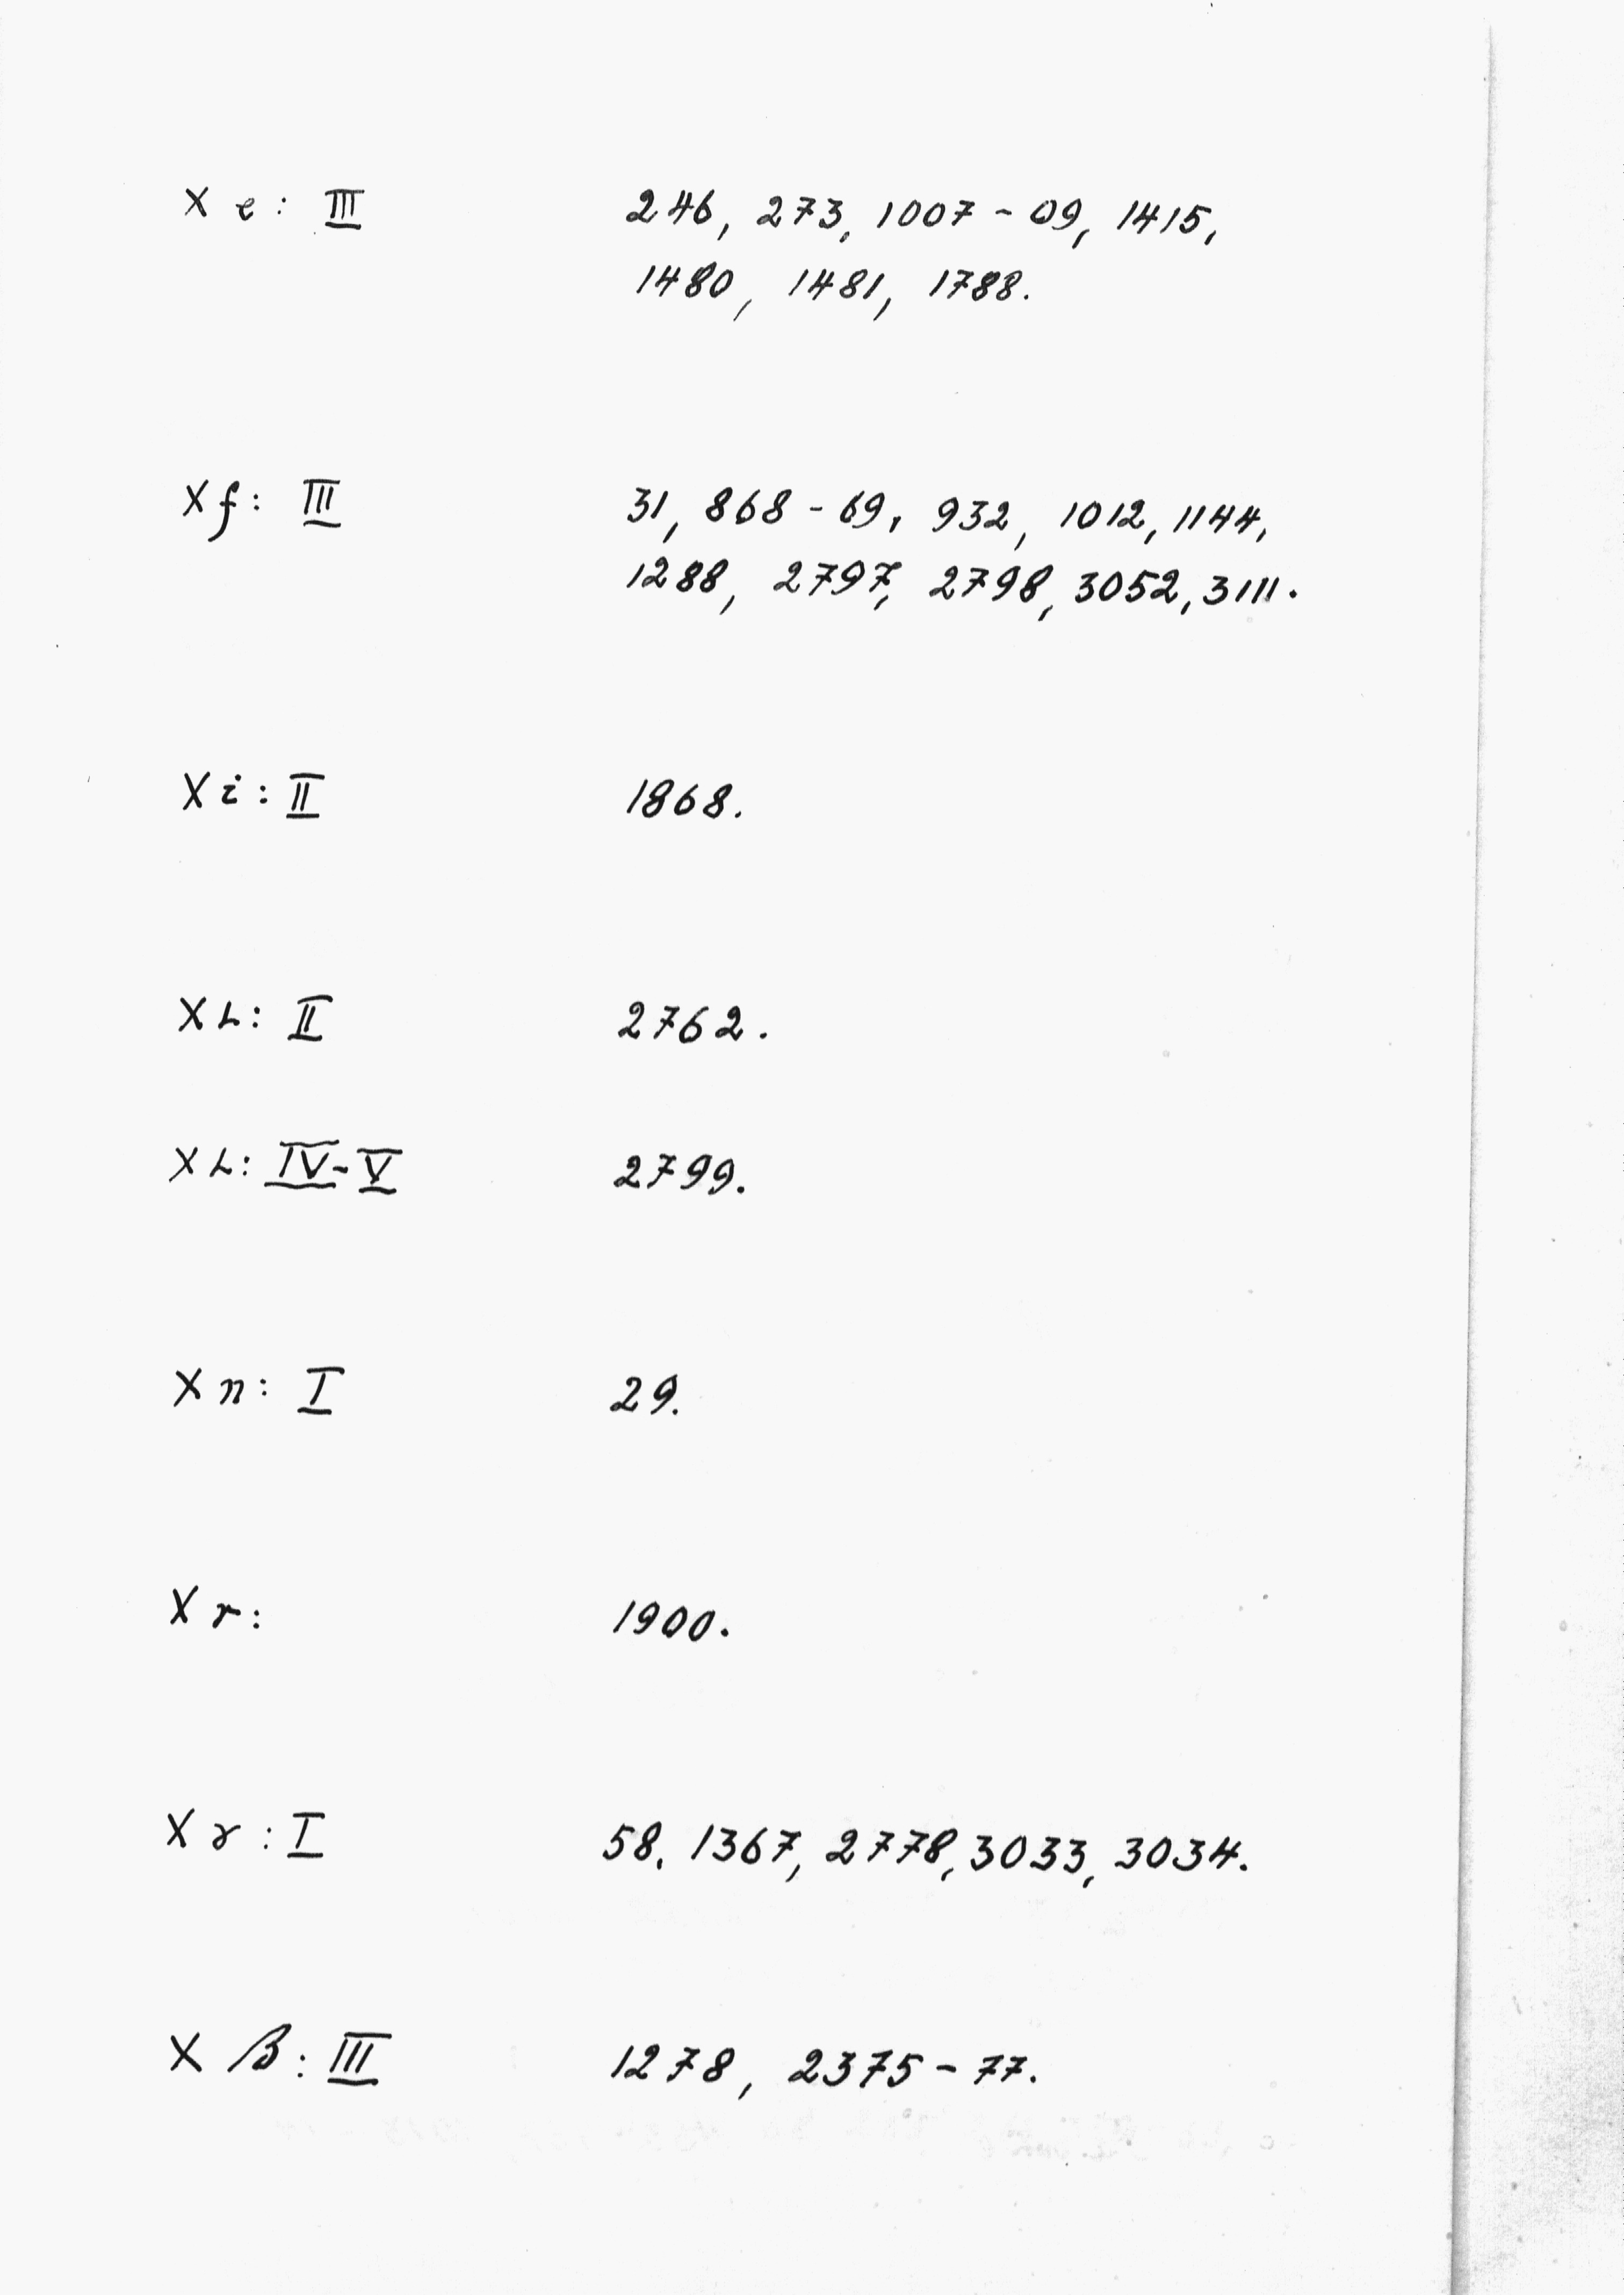 X e: III 246, 273, 1007 - 09, 1415,
1480, 1481, 1788.
X f: III 31, 868 - 69, 932, 1012, 1144,
1288, 2797, 2798, 3052, 3111.
X i: II 1868.
X L: II 2762.
X L: IV-V 2799.
X n: I 29.
X r: 1900.
X γ: I 58, 1367, 2778, 3033, 3034.
X β: III 1278, 2375 - 77.